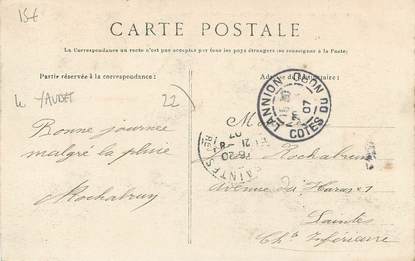 15€
CARTE POSTALE
La Correspondance au recto n'est pas acceptée par tous les pays étrangers (se renseigner à la Poste)
Partie réservée à la correspondance:
Adresse du Destinataire:
LE YAUDET
22
LANNION
COTES DU NORD
07
Bonne journée
malgré la pluie
Rochabrun
M
Rochabrun
avenue du Haras 1
Saintes
Chte Inférieure
SAINTES
16-20
21
07